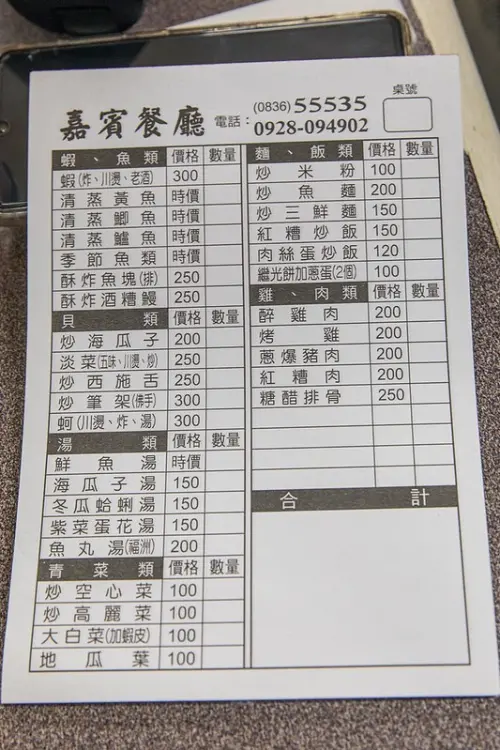 桌號
嘉賓餐廳 電話：(0836)55535
0928-094902
蝦、魚類 價格 數量
蝦(炸、川燙、老酒) 300
清蒸黃魚 時價
清蒸鯽魚 時價
清蒸鱸魚 時價
季節魚類 時價
酥炸魚塊(排) 250
酥炸酒糟鰻 250
貝類 價格 數量
炒海瓜子 200
淡菜(五味、川燙、炒) 250
炒西施舌 250
炒筆架(佛手) 300
蚵(川燙、炸、湯) 300
湯類 價格 數量
鮮魚湯 時價
海瓜子湯 150
冬瓜蛤蜊湯 150
紫菜蛋花湯 150
魚丸湯(福洲) 200
青菜類 價格 數量
炒空心菜 100
炒高麗菜 100
大白菜(加蝦皮) 100
地瓜葉 100
麵、飯類 價格 數量
炒米粉 100
炒魚麵 200
炒三鮮麵 150
紅糟炒飯 150
肉絲蛋炒飯 120
繼光餅加蔥蛋(2個) 100
雞、肉類 價格 數量
醉雞肉 200
烤雞 200
蔥爆豬肉 200
紅糟肉 200
糖醋排骨 250
合計